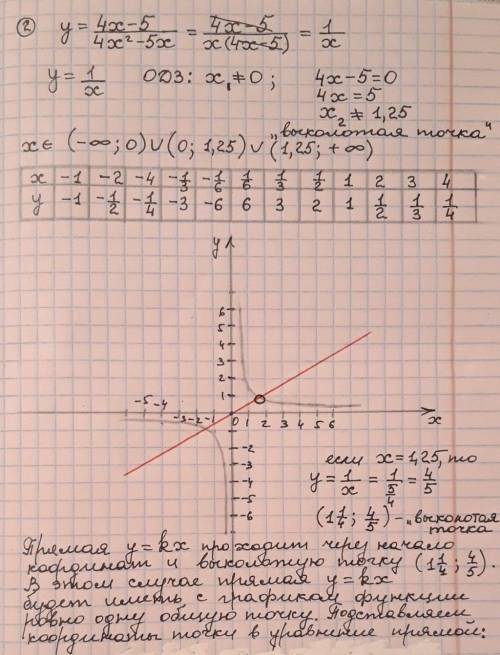 ② y = (4x-5)/(4x²-5x) = (4x-5)/(x(4x-5)) = 1/x
y = 1/x ОДЗ: x₁≠0; 4x-5=0
4x=5
x₂ ≠ 1,25
„выколотая точка"
x∈ (-∞; 0)∪(0; 1,25)∪(1,25; +∞)
x -1 -2 -4 -1/3 -1/6 1/6 1/3 1/2 1 2 3 4
y -1 -1/2 -1/4 -3 -6 6 3 2 1 1/2 1/3 1/4
y
6
5
4
3
2
1
-5 -4 -3 -2 -1 0 1 2 3 4 5 6 x
-2
-3
-4
-5
-6
если x=1,25, то
y = 1/x = 1/(5/4) = 4/5
(1 1/4; 4/5) - „выколотая
точка"
Прямая y=kx проходит через начало
координат и выколотую точку (1 1/4; 4/5).
В этом случае прямая y=kx
будет иметь с графиком функции
ровно одну общую точку. Подставляем
координаты точки в уравнение прямой: